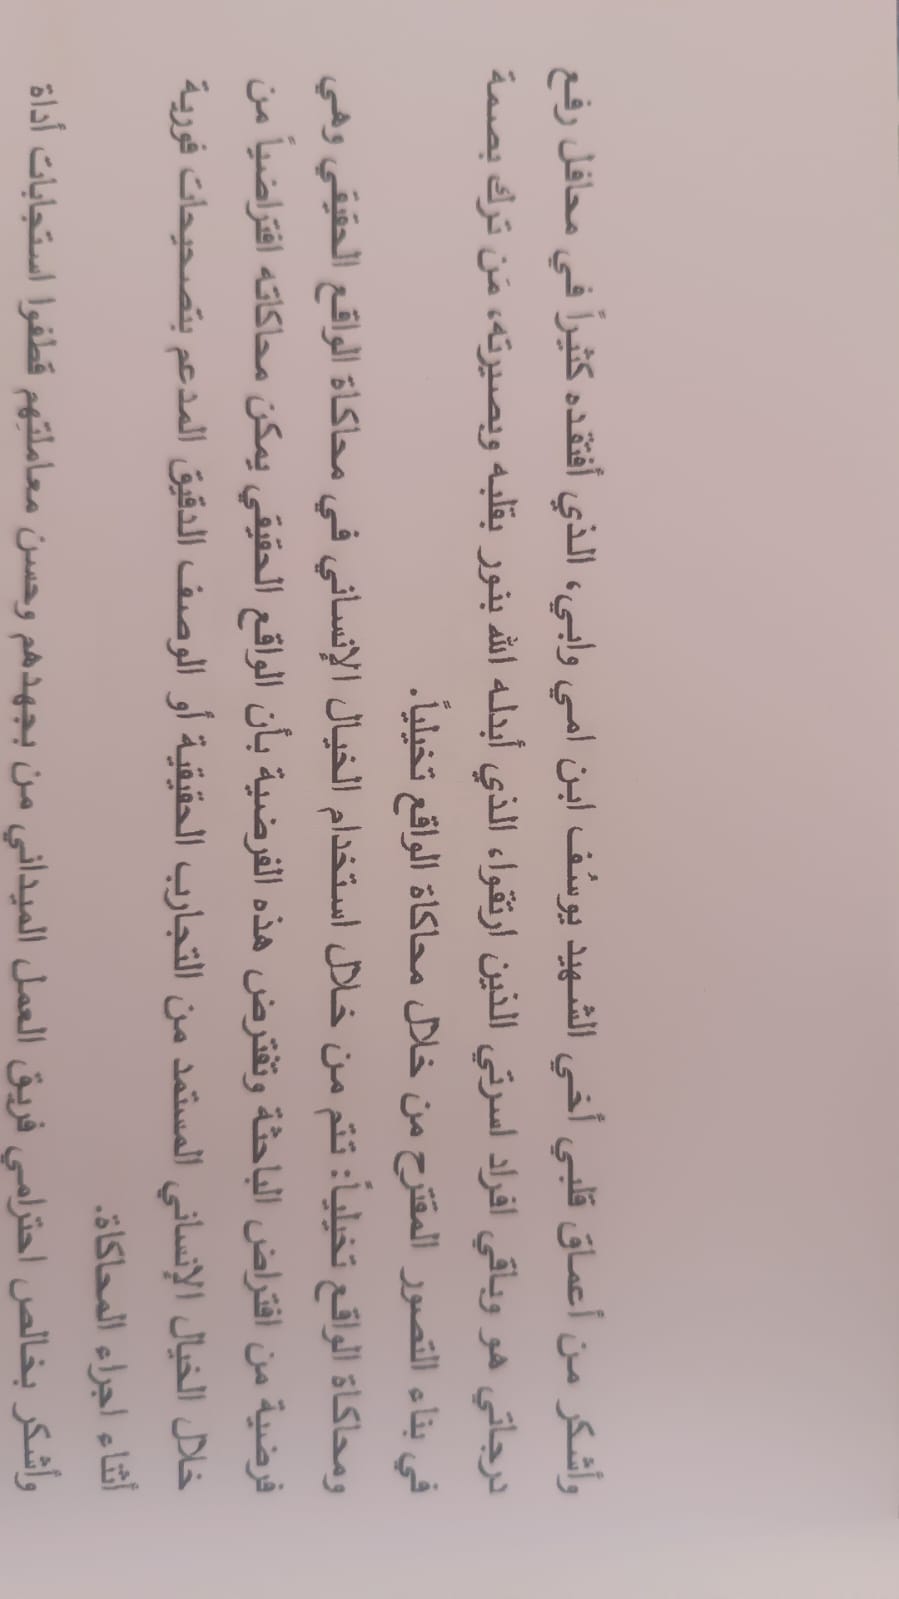 وأشكر من أعماق قلبي أخي الشهيد يوسُف ابن امي وابي، الذي أفتقده كثيراً في محافل رفع
درجاتي هو وباقي افراد اسرتي الذين ارتقواء الذي أبدله الله بنور بقلبه وبصيرته، مَن ترك بصمة
في بناء التصور المقترح من خلال محاكاة الواقع تخيلياً.
ومحاكاة الواقع تخيلياً: تتم من خلال استخدام الخيال الإنساني في محاكاة الواقع الحقيقي وهي
فرضية من افتراض الباحثة وتفترض هذه الفرضية بأن الواقع الحقيقي يمكن محاكاته افتراضياً من
خلال الخيال الإنساني المستمد من التجارب الحقيقية أو الوصف الدقيق المدعم بتصحيحات فورية
أثناء اجراء المحاكاة.
وأشكر بخالص احترامي فريق العمل الميداني من بجهدهم وحسن معاملتِهم قطفوا استجابات أداة